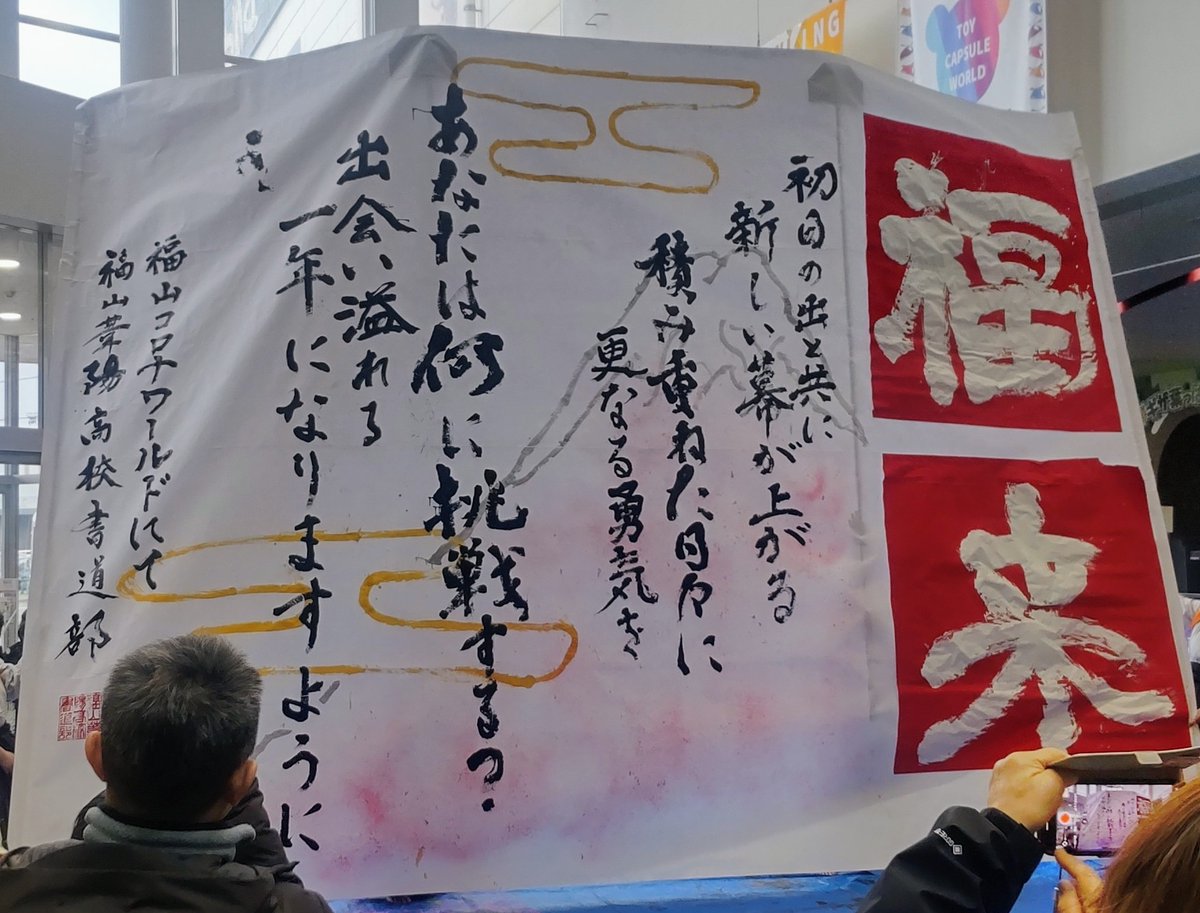 福来
初日の出と共に
新しい幕が上がる
積み重ねた日々に
更なる勇気を
あなたは何に挑戦する?
出会い溢れる
一年になりますように
福山コロナワールドにて
福山葦陽高校書道部
TOY
CAPSULE
WORLD